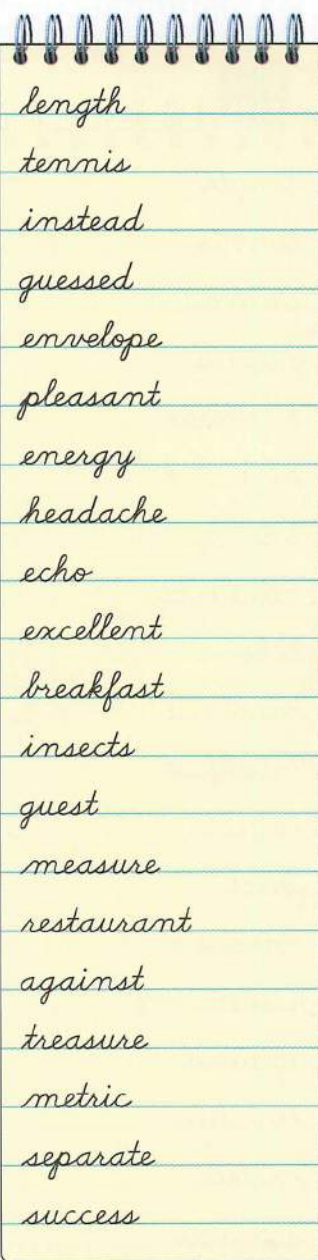 length
tennis
instead
guessed
envelope
pleasant
energy
headache
echo
excellent
breakfast
insects
guest
measure
restaurant
against
treasure
metric
separate
success